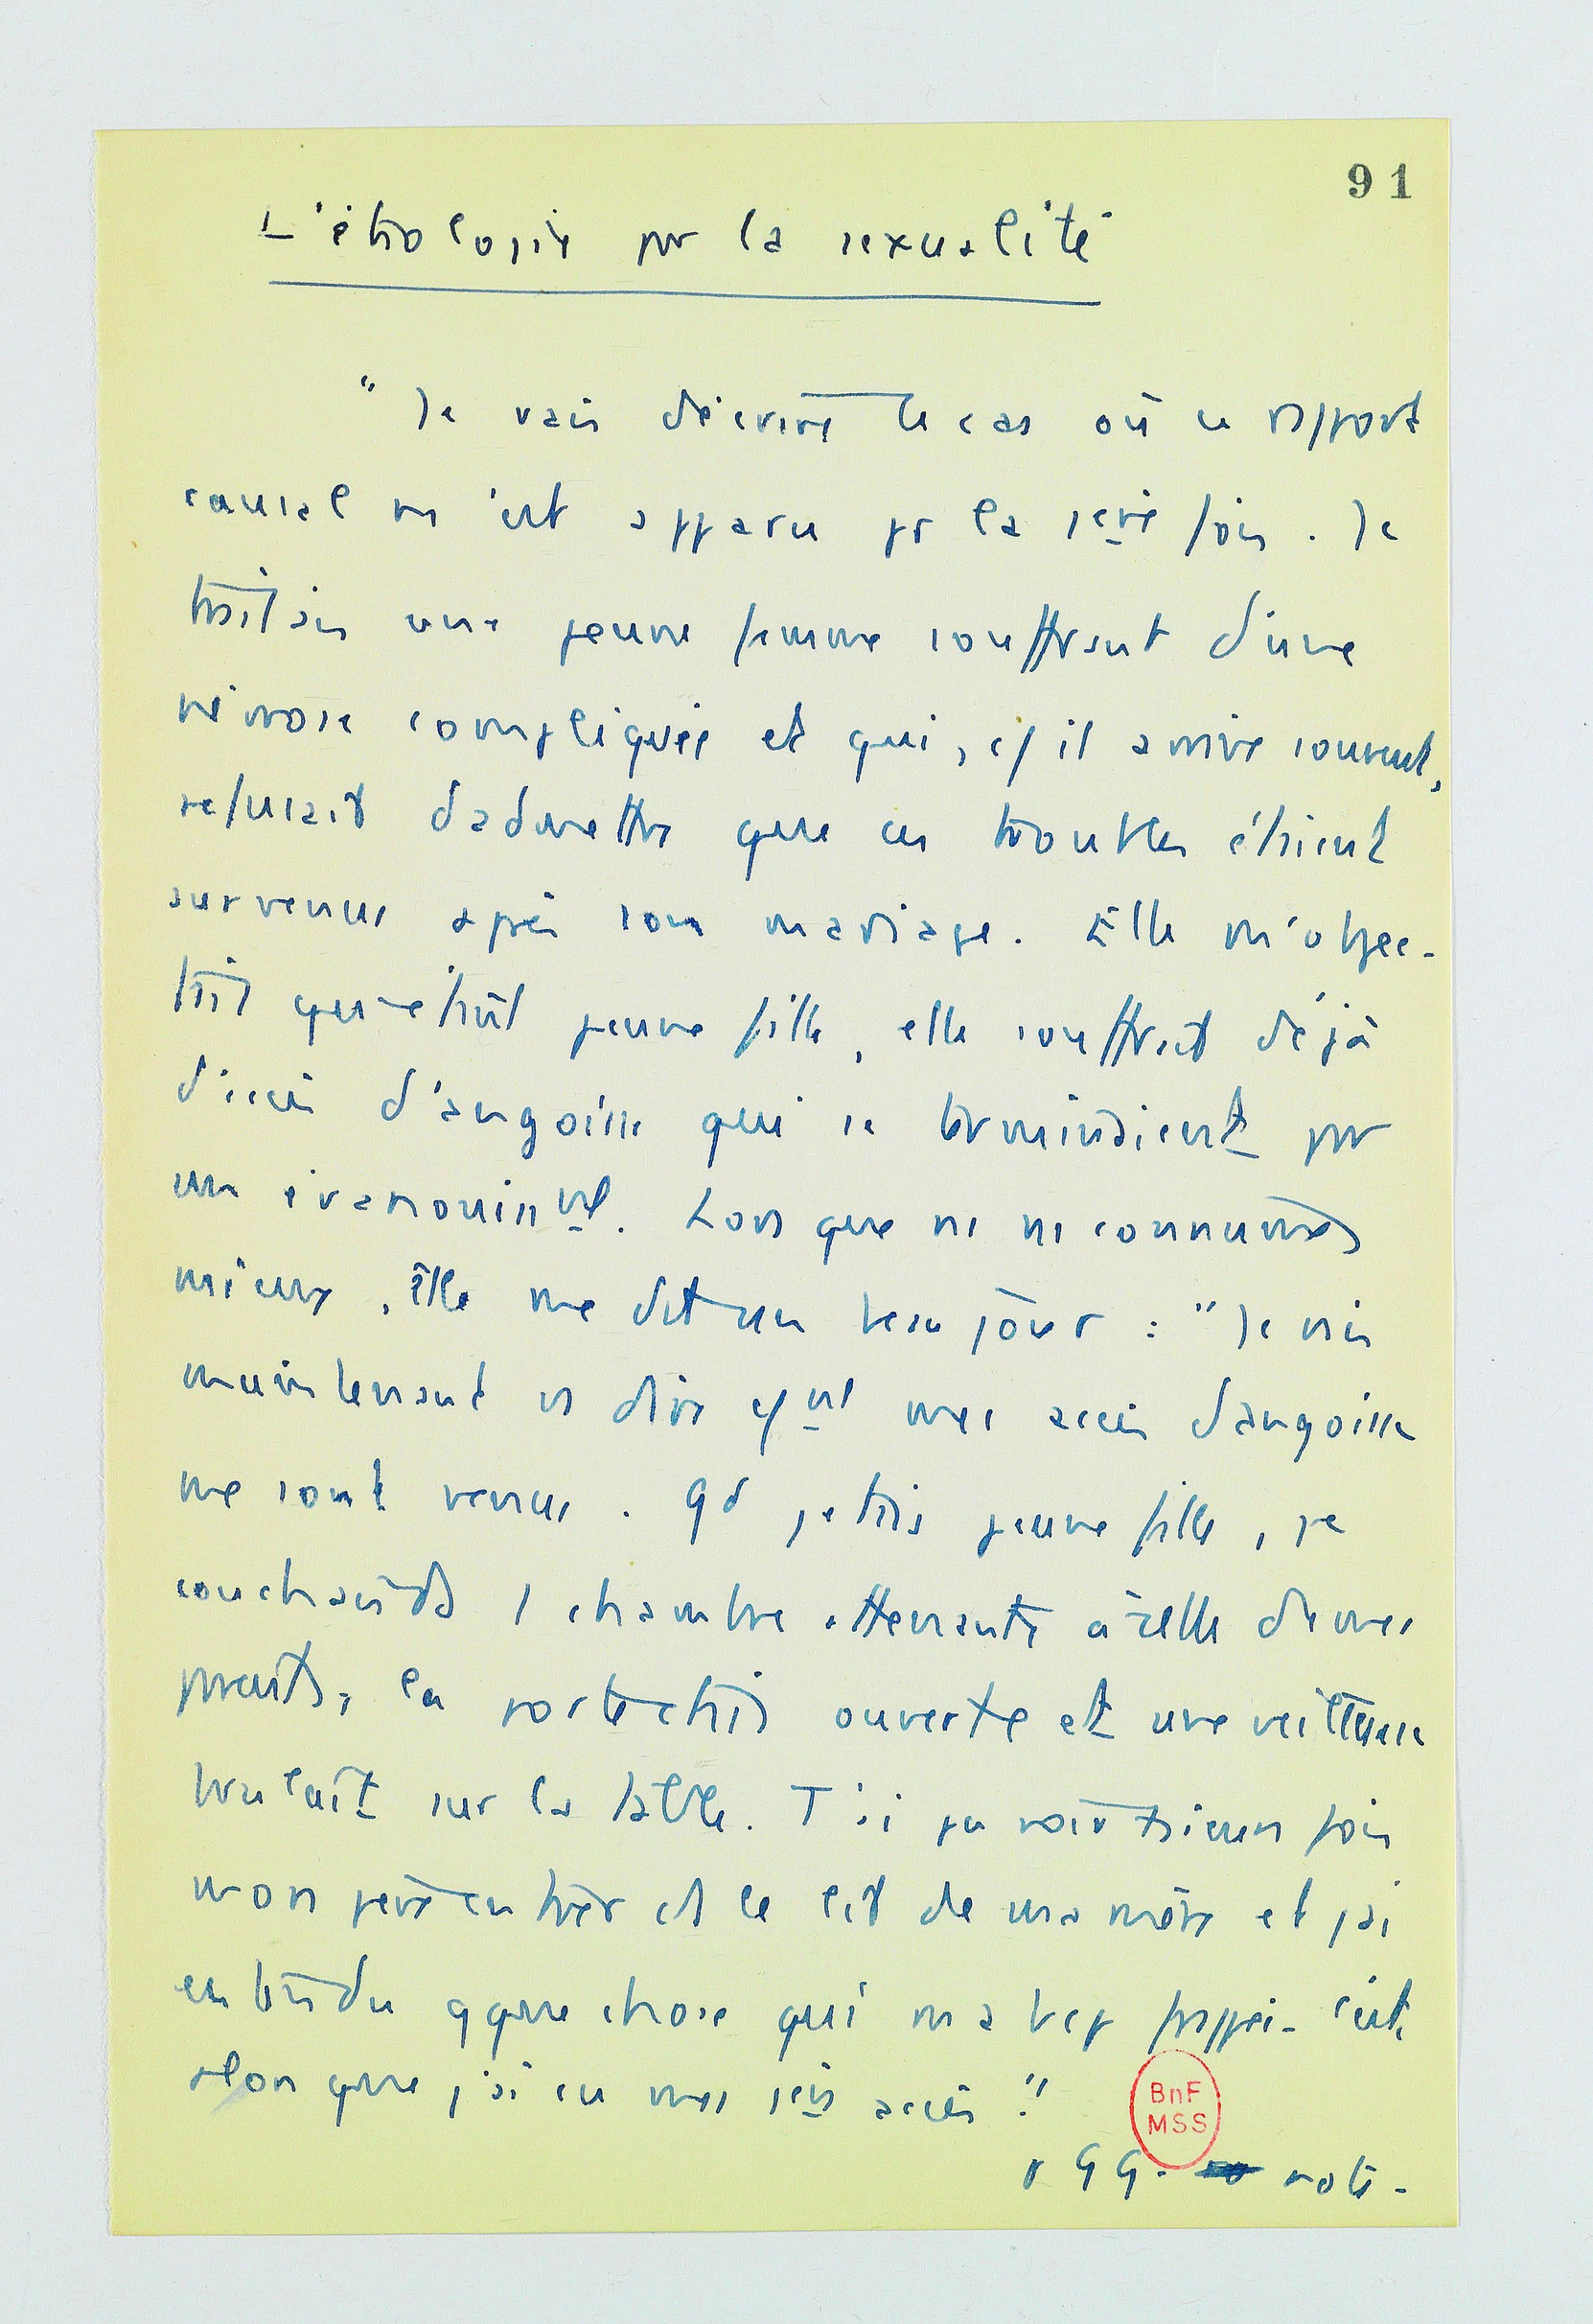 91
L'étiologie par la sexualité
"Je vais décrire le cas où ce rapport
causal m'est apparu pr la 1ère fois. Je
traitais une jeune femme souffrant d'une
névrose compliquée et qui, c/ il arrive souvent,
refusait d'admettre que ces troubles étaient
survenus après son mariage. Elle m'objec-
tait qu'étant jeune fille, elle souffrait déjà
d'accès d'angoisse qui se terminaient par
un évanouissmt. Lorsque ns ns connumes
mieux, elle me dit un beau jour : "Je vais
maintenant vs dire cmt mes accès d'angoisse
me sont venus. Qd j'étais jeune fille, je
couchais ds 1 chambre attenante à celle de mes
parents, la porte était ouverte et une veilleuse
brulait sur la table. J'ai pu voir plusieurs fois
mon père entrer ds le lit de ma mère et j'ai
entendu qque chose qui m'a bcp frappé. C'est
alors que j'ai eu mes 1ers accès."
p 99. note.
BnF
MSS